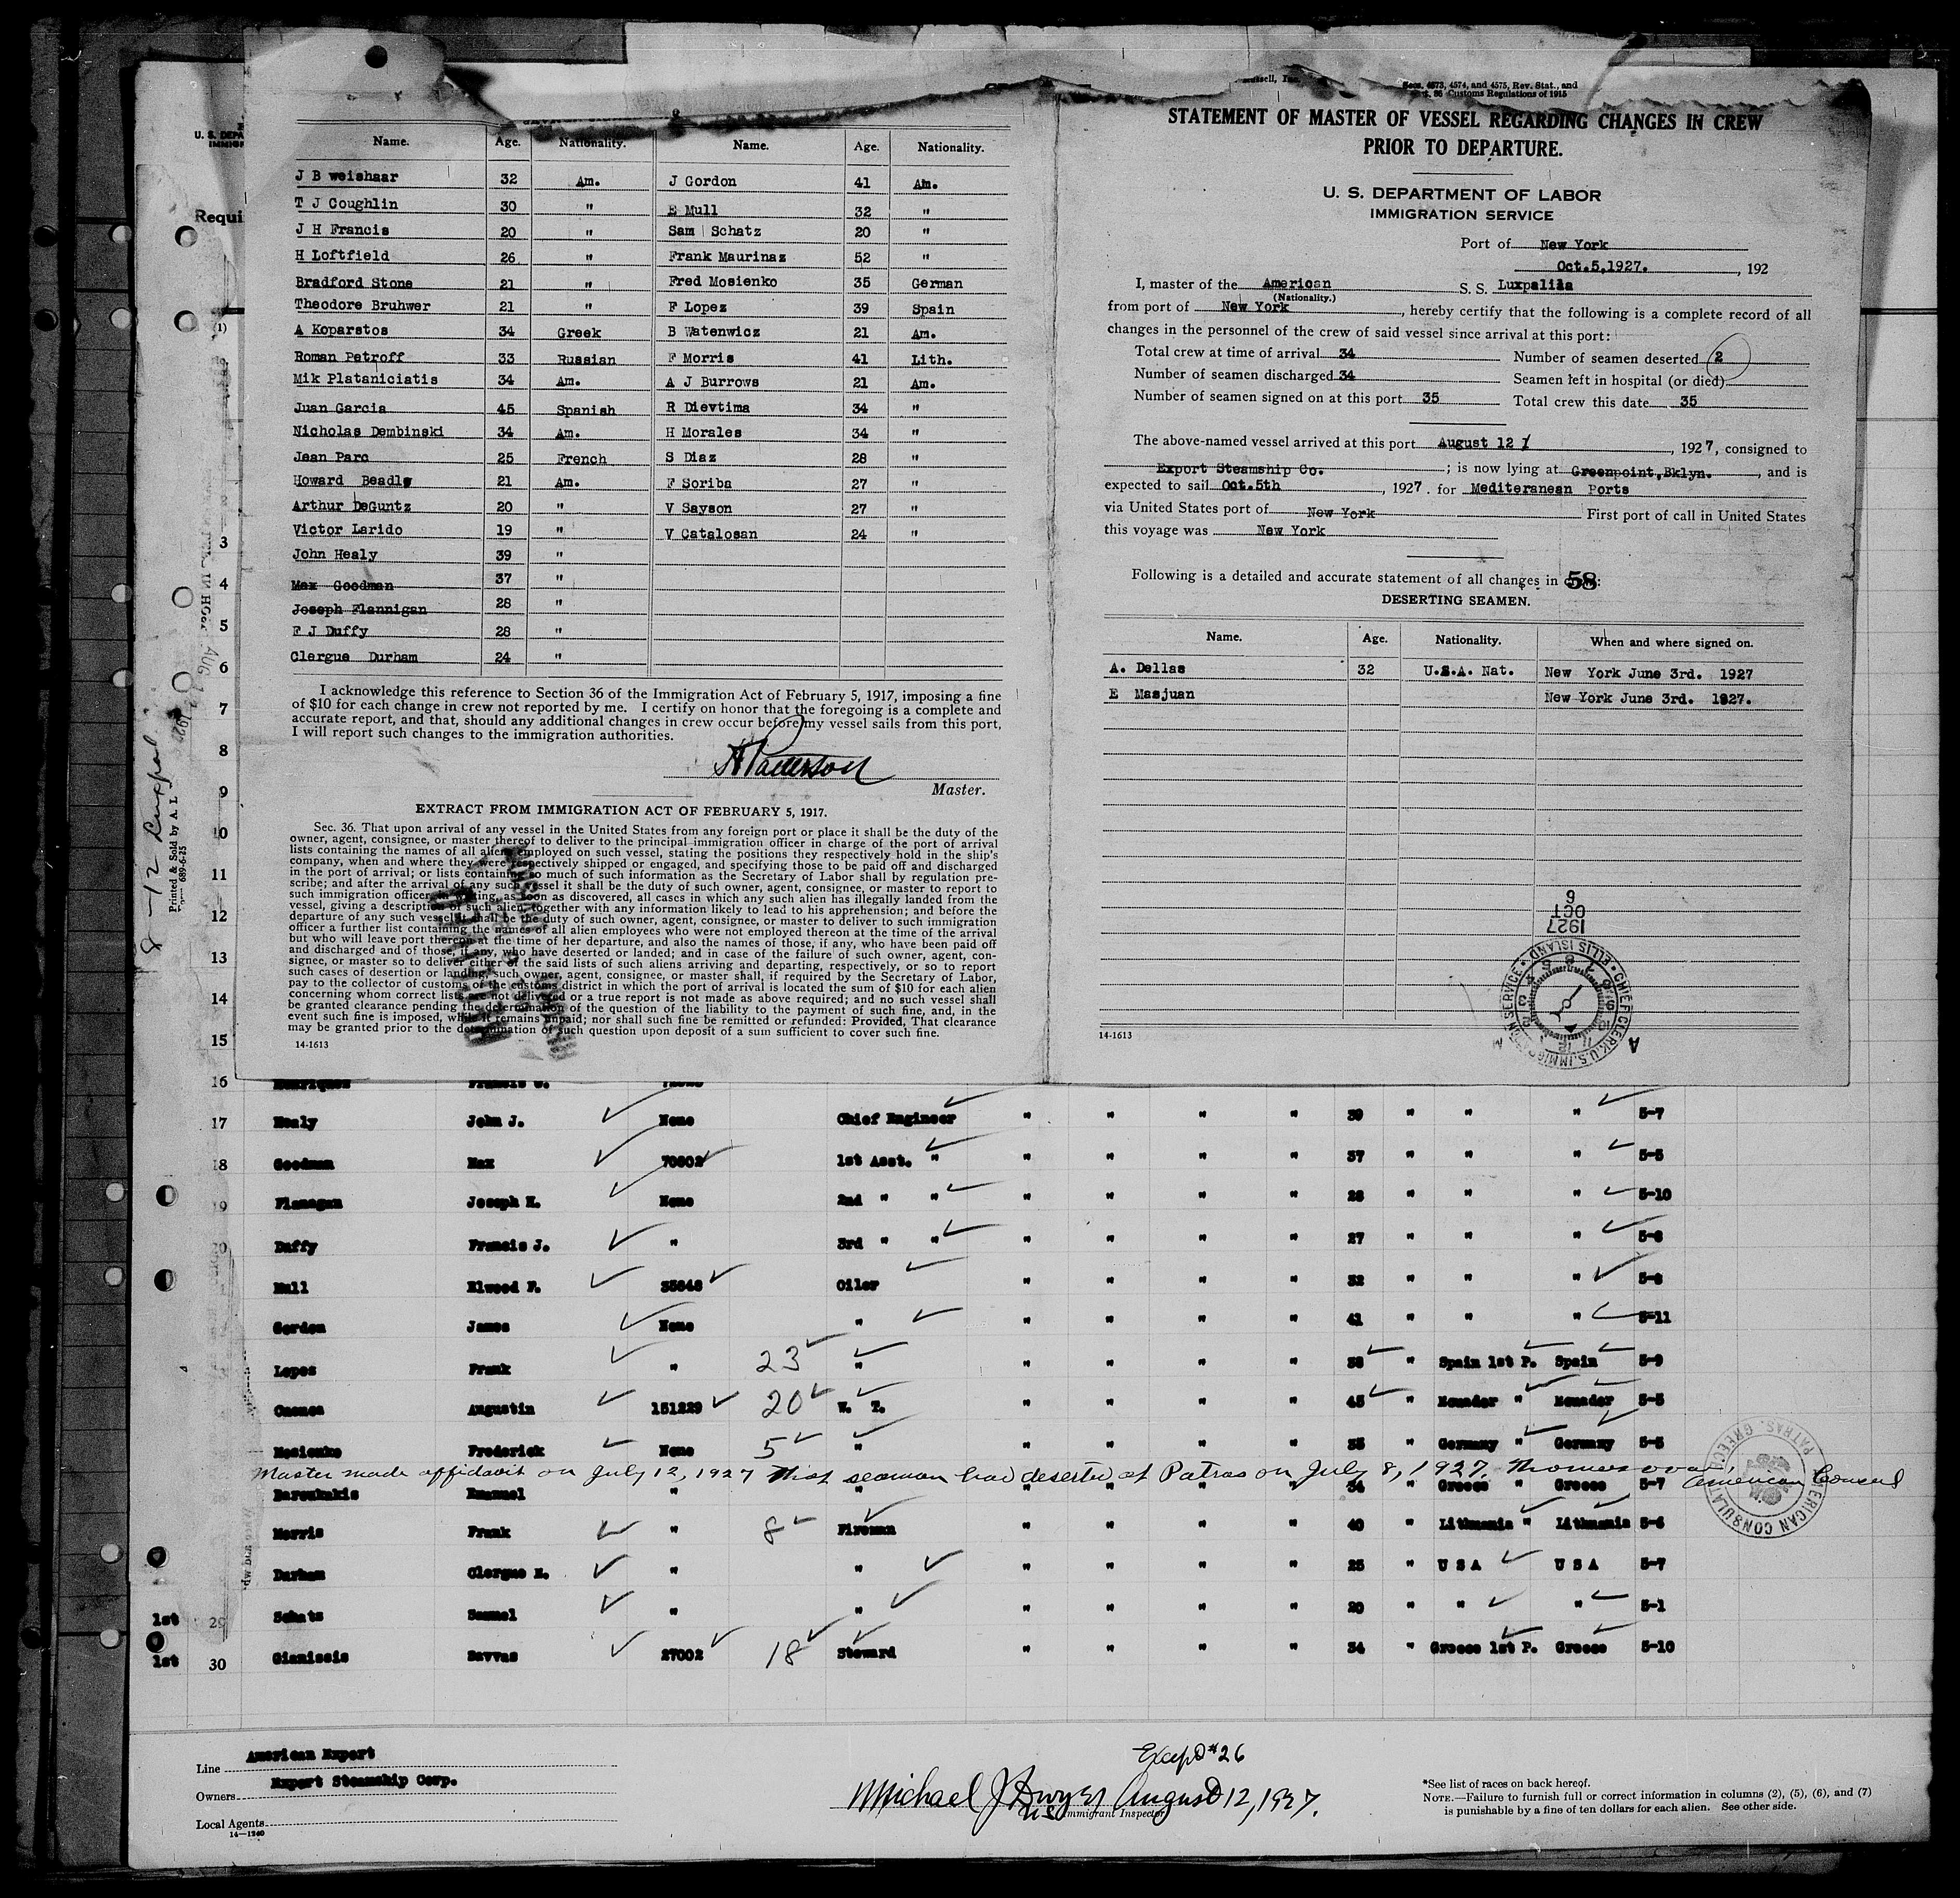 Name. Age. Nationality. Name. Age. Nationality.
J B weishaar 32 Am. J Gordon 41 Am.
T J Coughlin 30 " E Mull 32 "
J H Francis 20 " Sam Schatz 20 "
H Loftfield 26 " Frank Maurinaz 52 "
Bradford Stone 21 " Fred Mosienko 35 German
Theodore Bruhwer 21 " F Lopez 39 Spain
A Koparstos 34 Greek B Watenwicz 21 Am.
Roman Petroff 33 Russian F Morris 41 Lith.
Mik Plataniciatis 34 Am. A J Burrows 21 Am.
Juan Garcia 45 Spanish R Dievtima 34 "
Nicholas Dembinski 34 Am. H Morales 34 "
Jean Parc 25 French S Diaz 28 "
Howard Beadle 21 Am. F Soriba 27 "
Arthur DeGuntz 20 " V Sayson 27 "
Victor Larido 19 " V Catalosan 24 "
John Healy 39 "
Max Goodman 37 "
Joseph Flannigan 28 "
F J Duffy 28 "
Clergue Durham 24 "
I acknowledge this reference to Section 36 of the Immigration Act of February 5, 1917, imposing a fine
of $10 for each change in crew not reported by me. I certify on honor that the foregoing is a complete and
accurate report, and that, should any additional changes in crew occur before my vessel sails from this port,
I will report such changes to the immigration authorities.
Patterson
Master.
EXTRACT FROM IMMIGRATION ACT OF FEBRUARY 5, 1917.
Sec. 36. That upon arrival of any vessel in the United States from any foreign port or place it shall be the duty of the
owner, agent, consignee, or master thereof to deliver to the principal immigration officer in charge of the port of arrival
lists containing the names of all aliens employed on such vessel, stating the positions they respectively hold in the ship's
company, when and where they were respectively shipped or engaged, and specifying those to be paid off and discharged
in the port of arrival; or lists containing so much of such information as the Secretary of Labor shall by regulation pre-
scribe; and after the arrival of any such vessel it shall be the duty of such owner, agent, consignee, or master to report to
such immigration officer, in writing, as soon as discovered, all cases in which any such alien has illegally landed from the
vessel, giving a description of such alien, together with any information likely to lead to his apprehension; and before the
departure of any such vessel it shall be the duty of such owner, agent, consignee, or master to deliver to such immigration
officer a further list containing the names of all alien employees who were not employed thereon at the time of the arrival
but who will leave port thereon at the time of her departure, and also the names of those, if any, who have been paid off
and discharged and of those, if any, who have deserted or landed; and in case of the failure of such owner, agent, con-
signee, or master so to deliver either of the said lists of such aliens arriving and departing, respectively, or so to report
such cases of desertion or landing, such owner, agent, consignee, or master shall, if required by the Secretary of Labor,
pay to the collector of customs of the customs district in which the port of arrival is located the sum of $10 for each alien
concerning whom correct lists are not delivered or a true report is not made as above required; and no such vessel shall
be granted clearance pending the determination of the question of the liability to the payment of such fine, and, in the
event such fine is imposed, while it remains unpaid; nor shall such fine be remitted or refunded: Provided, That clearance
may be granted prior to the determination of such question upon deposit of a sum sufficient to cover such fine.
14-1613
Secs. 4573, 4574, and 4575, Rev. Stat., and
36 Customs Regulations of 1915
STATEMENT OF MASTER OF VESSEL REGARDING CHANGES IN CREW
PRIOR TO DEPARTURE.
U. S. DEPARTMENT OF LABOR
IMMIGRATION SERVICE
Port of New York
Oct.5,1927. , 192
I, master of the American S. S. Luxpalila
(Nationality.)
from port of New York , hereby certify that the following is a complete record of all
changes in the personnel of the crew of said vessel since arrival at this port:
Total crew at time of arrival 34 Number of seamen deserted 2
Number of seamen discharged 34 Seamen left in hospital (or died)
Number of seamen signed on at this port 35 Total crew this date 35
The above-named vessel arrived at this port August 12 , 1927, consigned to
Export Steamship Co. ; is now lying at Greenpoint,Bklyn. , and is
expected to sail Oct.5th , 1927. for Mediteranean Ports
via United States port of New York First port of call in United States
this voyage was New York
Following is a detailed and accurate statement of all changes in 58:
DESERTING SEAMEN.
Name. Age. Nationality. When and where signed on.
A. Dellas 32 U.S.A. Nat. New York June 3rd. 1927
E Masjuan New York June 3rd. 1927.
1927
OCT
6
CHIEF CLERK, U.S. IMMIGRATION SERVICE • ELLIS ISLAND
14-1613
U. S. DEPA
IMMIG
Requi
(1)
8-12 Luxpal
Printed & Sold by A. L
689-6-25
3
4
5
6
7
8
9
10
11
12
13
14
15
16 Henriques Francis
17 Healy John J. None Chief Engineer " " " " 39 " " " 5-7
18 Goodman Max 70602 1st Asst. " " " " " 37 " " " 5-5
19 Flanagan Joseph H. None 2nd " " " " " " 28 " " " 5-10
20 Duffy Francis J. " 3rd " " " " " " 27 " " " 5-8
Mull Elwood F. 35648 Oiler " " " " 32 " " " 5-8
Gordon James None " " " " " 41 " " " 5-11
Lopes Frank " 23 " " " " " 38 " Spain 1st P. Spain 5-9
Augustin 151229 20 W. T. " " " " 45 " Ecuador " Ecuador 5-5
Mosienko Frederick None 5 " " " " " 35 " Germany " Germany 5-5
Master made affidavit on July 12, 1927 that seaman had deserted at Patras on July 8, 1927. American Consul
Baroukakis Emanuel " " " " " " 34 " Greece " Greece 5-7
AMERICAN CONSULATE PATRAS. GREECE
Morris Frank " 8 Fireman " " " " 40 " Lithuania " Lithuania 5-6
Durham Clergue H. " " " " " " 25 " U S A U S A 5-7
1st 29 Schatz Samuel " " " " " " 20 " " " 5-1
1st 30 Gianissis Savvas 27002 18 Steward " " " " 34 " Greece 1st P. Greece 5-10
Line American Export
Owners Export Steamship Corp.
Local Agents
14-1240
Except #26
Michael J Dwyer August 12, 1927.
U.S. Immigrant Inspector
*See list of races on back hereof.
NOTE.—Failure to furnish full or correct information in columns (2), (5), (6), and (7)
is punishable by a fine of ten dollars for each alien. See other side.